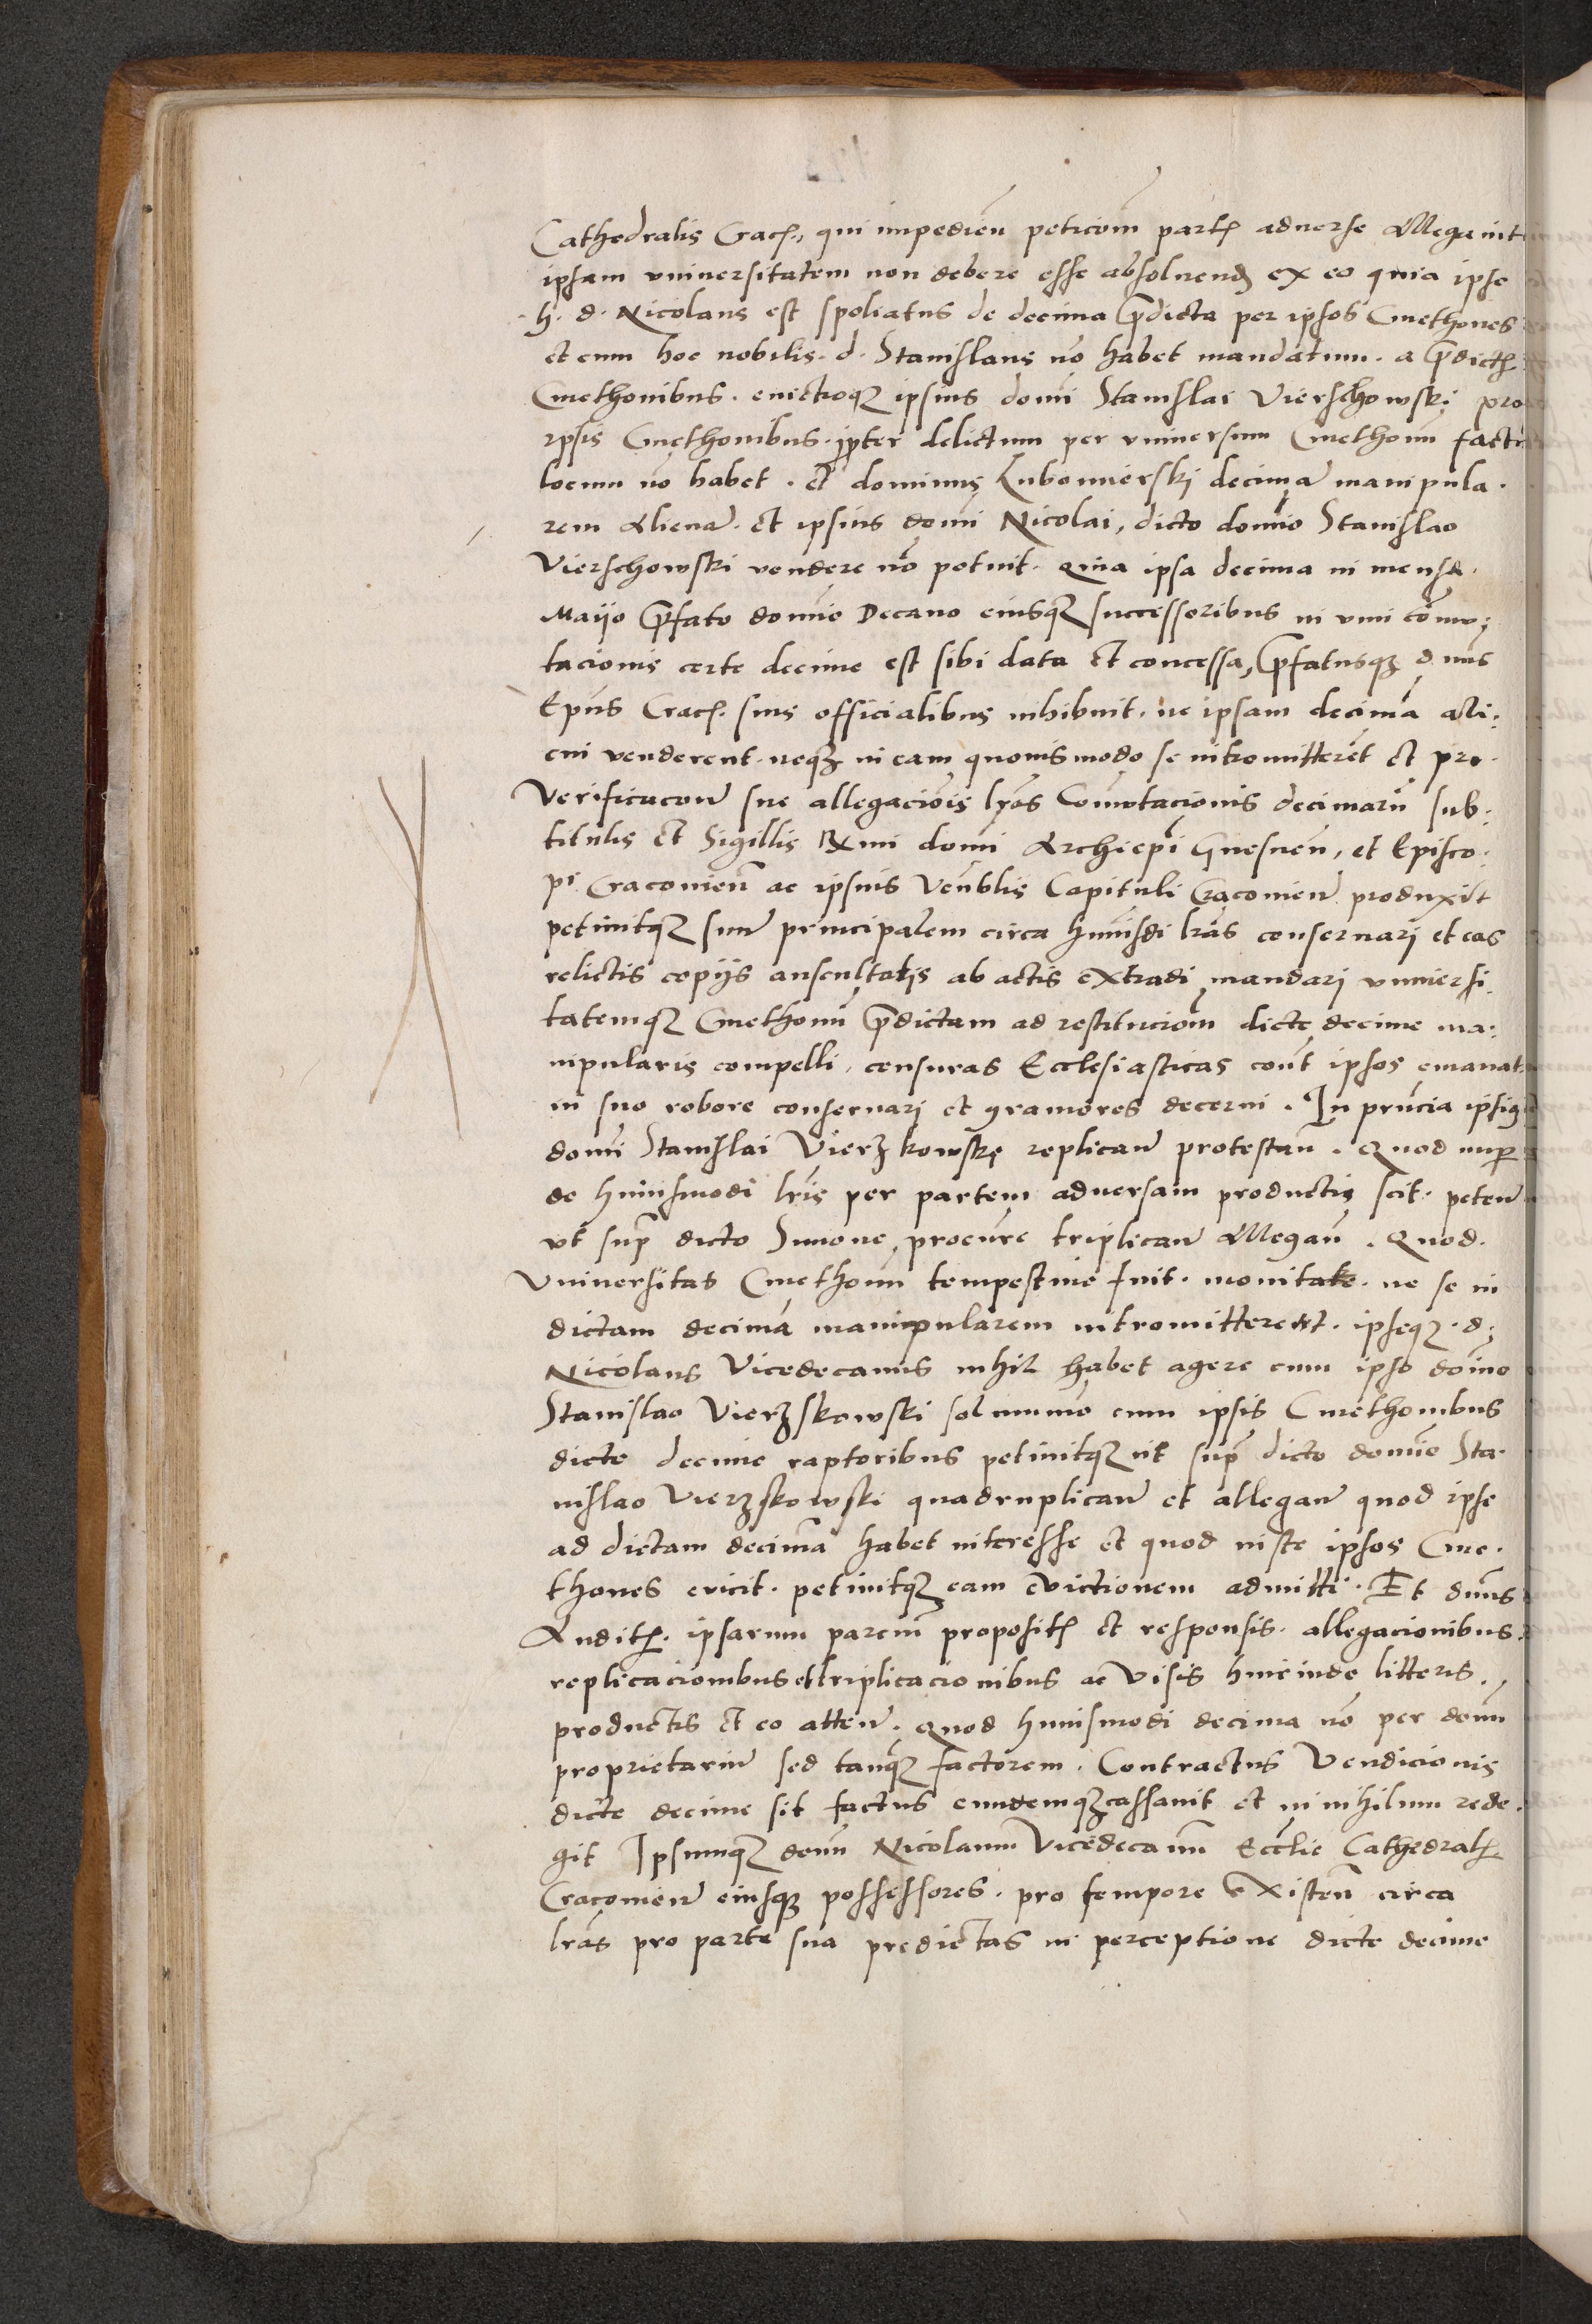 Cathedralis Crac., qui impedien peticom part adverse Allegavit
ipsam universitatem non debere esse absolvend ex eo quia ipse
h. d. Nicolaus est spoliatus de decima pdicta per ipsos Cmethones
et cum hoc nobilis. d. Stanislaus no habet mandatum. a pdict
Cmethonibus. evictioq ipsius domi Stanislai Vierschowski pro
ipsis Cmethonibus. ppter delictum per universum Cmethonu factu
locum no habet. et dominus Lubomierski decima manipula.
rem Aliena. et ipsius domi Nicolai, dicto domio Stanislao
Vierschowski vendere no potuit. Quia ipsa decima in mensa.
Maijo pfato domio Decano eiusq successoribus in vim comu;
tacionis certe decime est sibi data et concessa, pfatusq d nus
Epus Crac. suis officialibus inhibuit. ne ipsam decima ali:
cui venderent. neq in eam quovismodo se intromitteret et pro.
Verificacone sue allegaciois lras Comutacionis decimaru sub:
titulis et Sigillis Rmi domi Archiepi Gnesnen, et Episco:
pi Cracovien ac ipsius Venblis Capituli Cracovien produxit
petivitq sum principalem circa huiusdi lras conservari et eas
relictis copijs auscultatis ab actis extradi mandari universi.
tatemq Cmethonu pdictam ad restituciom dicte decime ma:
nipularis compelli. censuras Ecclesiasticas cont ipsos emanat
in suo robore conservari et graviores decerni. In pncia ipsius
domi Stanislai Vierzkowski replican protestan. Quod nup
de huiusmodi lris per partem adversam productis scit. peten
ut sup dicto Simone procure triplican Allegan. Quod.
Universitas Cmethonu tempestive fuit. monita. ne se in
dictam decima manipularem intromitterent. ipseq. d.
Nicolaus Vicedecanus nihil habet agere cum ipso domino
Stanislao Vierzskowski solummo cum ipsis Cmethonibus
dicte decime raptoribus petivitq ut sup dicto domio Sta.
nislao Vierzskowski quadruplican et allegan quod ipse
ad dictam decima habet interesse et quod iuste ipsos Cme.
thones evicit. petivitq eam evictionem admitti. Et dnus
Audit. ipsarum parcium proposit et responsis. allegacionibus.
replicacionibus et triplicacionibus ac Visis hincinde litteris.
productis et eo atten. Quod huiusmodi decima no per domu
proprietariu sed tanq factorem. Contractus Vendicionis
dicte decime sit factus eundemq cassavit et in nihilum rede.
git Ipsumq domu Nicolaum Vicedecanu Ecclie Cathedral
Cracovien eiusq possessores. pro tempore existen circa
lras pro parte sua predictas in perceptione dicte decime